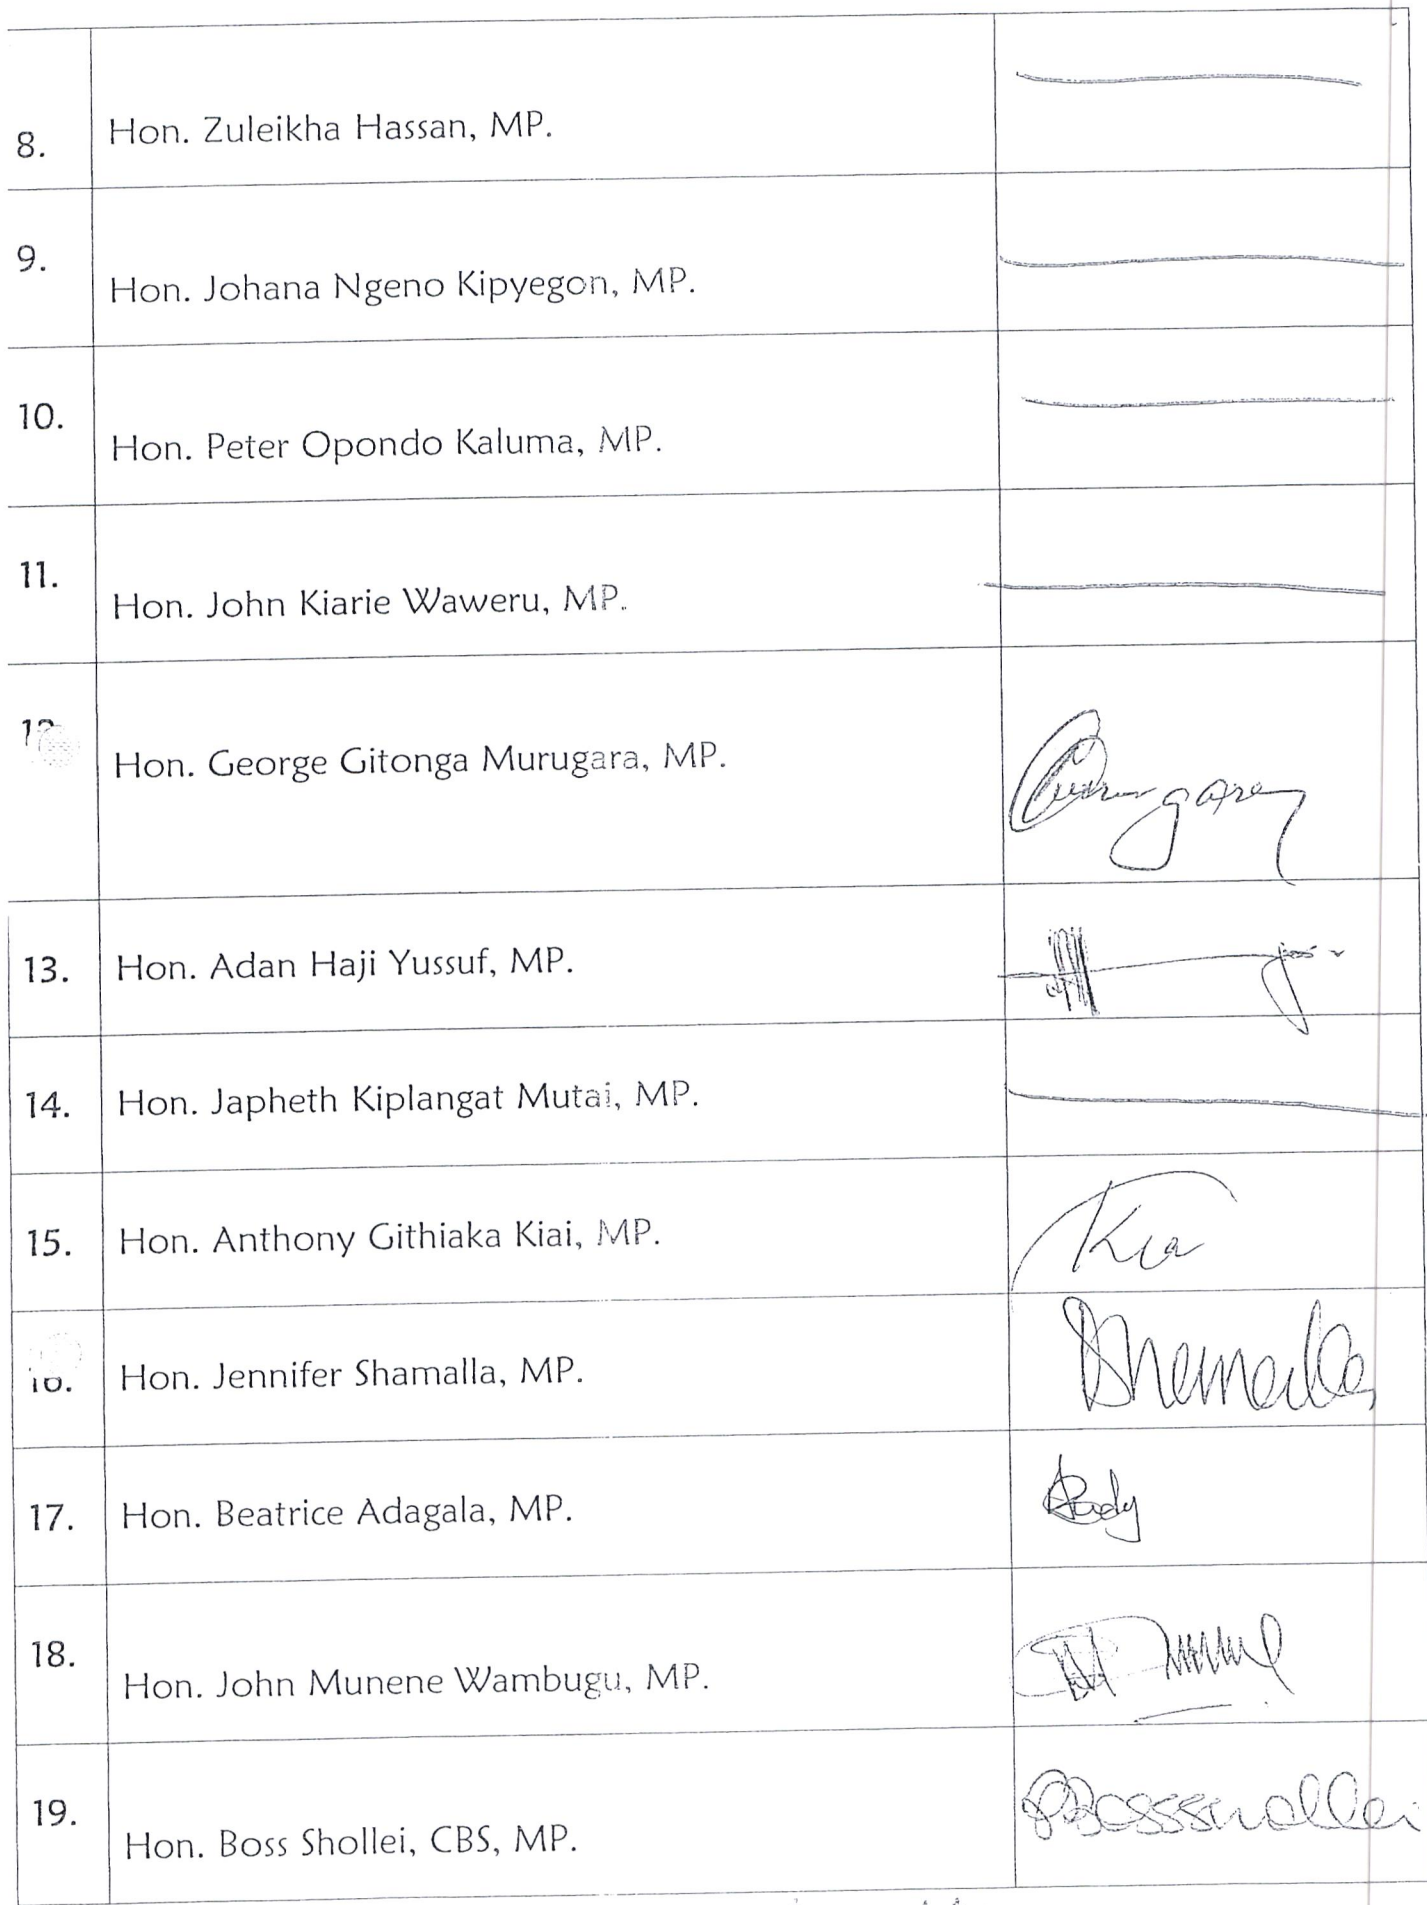 8. Hon. Zuleikha Hassan, MP.
9. Hon. Johana Ngeno Kipyegon, MP.
10. Hon. Peter Opondo Kaluma, MP.
11. Hon. John Kiarie Waweru, MP.
Hon. George Gitonga Murugara, MP.
13. Hon. Adan Haji Yussuf, MP.
14. Hon. Japheth Kiplangat Mutai, MP.
15. Hon. Anthony Githiaka Kiai, MP.
16. Hon. Jennifer Shamalla, MP.
17. Hon. Beatrice Adagala, MP.
18. Hon. John Munene Wambugu, MP.
19. Hon. Boss Shollei, CBS, MP.